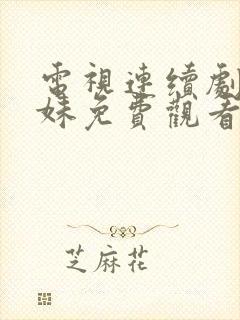 電視連續劇
妹免費觀看
芝麻花